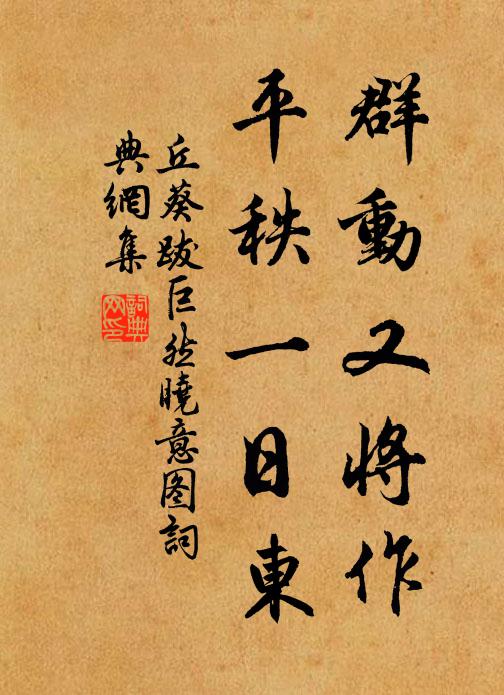 群動又將作
平秩一日東
丘葵跋巨然曉意图詞
典網集
詞典网印